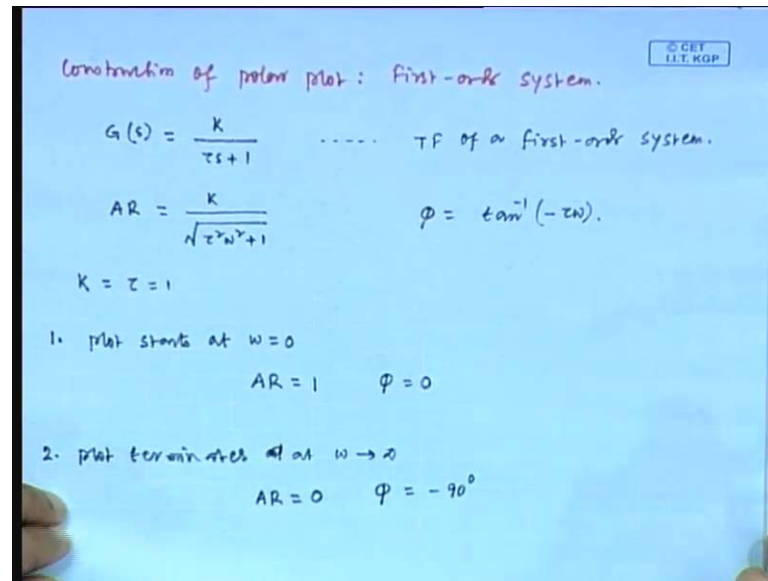 © CET
I.I.T. KGP
Construction of polar plot : First-order system.
G(s) = K / (τs + 1) ..... TF of a first-order system.
AR = K / √(τ²ω² + 1) φ = tan⁻¹(-τω).
K = τ = 1
1. plot starts at ω = 0
AR = 1 φ = 0
2. plot terminates at ω → ∞
AR = 0 φ = -90°